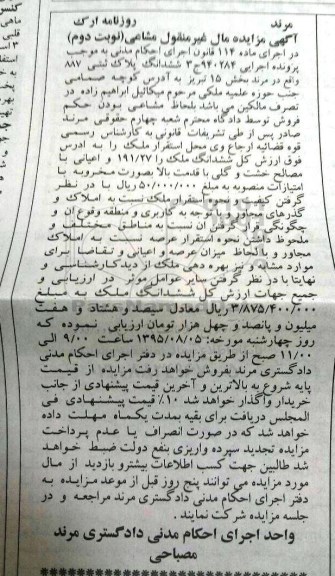 مرند روزنامه ارک
آگهی مزایده مال غیرمنقول مشاعی(نوبت دوم)
در اجرای ماده ۱۱۴ قانون اجرای احکام مدنی به موجب
پرونده اجرایی ۹۴۰۲۸۴ج۳ ششدانگ پلاک ثبتی ۸۸۷
واقع در مرند بخش ۱۵ تبریز به آدرس کوچه صمامی
جنب حوزه علمیه ملکی مرحوم میکائیل ابراهیم زاده در
تصرف مالکین می باشد بلحاظ مشاعی بودن حکم
فروش توسط دادگاه محترم شعبه چهارم حقوقی مرند
صادر پس از طی تشریفات قانونی به کارشناس رسمی
قوه قضائیه ارجاع وی محل استقرار ملک را به آدرس
فوق ارزش کل ششدانگ ملک را ۱۹۱/۲۷ و اعیانی با
مصالح خشت و گلی با قدمت بالا بصورت مخروبه با
امتیازات منصوبه به مبلغ ۵۰/۰۰۰/۰۰۰ ریال با در نظر
گرفتن کیفیت و نحوه استقرار ملک نسبت به املاک و
گذرهای مجاور و با توجه به کاربری و منطقه وقوع آن و
چگونگی قرار گرفتن آن نسبت به مناطق مختلف و
ملحوظ داشتن نحوه استقرار عرصه نسبت به املاک
مجاور و با لحاظ میزان عرصه و اعیانی و تقاضا برای
موارد مشابه و نیز بهره دهی ملک از دید کارشناسی و
نهایتا با در نظر گرفتن سایر عوامل موثر در ارزیابی و
جمیع جهات ارزش کل ششدانگ ملک به مبلغ
۳/۸۷۵/۴۰۰/۰۰۰ ریال معادل سیصد و هشتاد و هفت
میلیون و پانصد و چهل هزار تومان ارزیابی نموده که
روز چهارشنبه مورخه: ۱۳۹۵/۰۸/۰۵ ساعت ۹/۰۰ الی
۱۱/۰۰ صبح از طریق مزایده در دفتر اجرای احکام مدنی
دادگستری مرند بفروش خواهد رفت مزایده از قیمت
پایه شروع به بالاترین و آخرین قیمت پیشنهادی از جانب
خریدار واگذار خواهد شد ۱۰٪ قیمت پیشنهادی فی
المجلس دریافت برای بقیه بمدت یکماه مهلت داده
خواهد شد که در صورت انصراف یا عدم پرداخت
مزایده تجدید سپرده واریزی بنفع دولت ضبط خواهد
شد طالبین جهت کسب اطلاعات بیشتر و بازدید از مال
مورد مزایده می توانند پنج روز قبل از موعد مزایده به
دفتر اجرای احکام مدنی دادگستری مرند مراجعه و در
جلسه مزایده شرکت نمایند.
واحد اجرای احکام مدنی دادگستری مرند
مصباحی